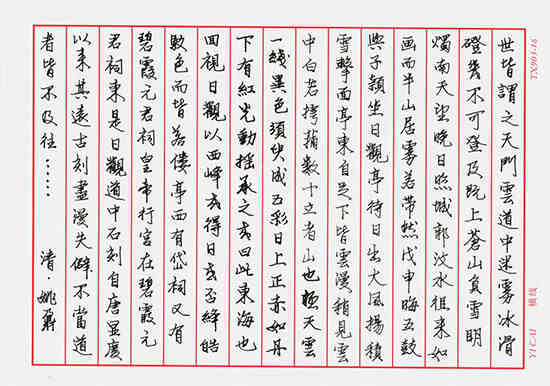 世皆謂之天門雲道中迷霧冰滑
磴幾不可登及既上蒼山負雪明
燭南天望晚日照城郭汶水徂來如
畫而半山居霧若帶然戊申晦五鼓
與子潁坐日觀亭待日出大風揚積
雪擊面亭東自足下皆雲漫稍見雲
中白若摴蒱數十立者山也極天雲
一綫異色須臾成五彩日上正赤如丹
下有紅光動摇承之或曰此東海也
回視日觀以西峰或得日或否絳皓
駁色而皆若僂亭西有岱祠又有
碧霞元君祠皇帝行宮在碧霞元
君祠東是日觀道中石刻自唐显慶
以来其遠古刻盡漫失僻不當道
者皆不及往…… 清·姚鼐
TX903-16
YICAI 横线